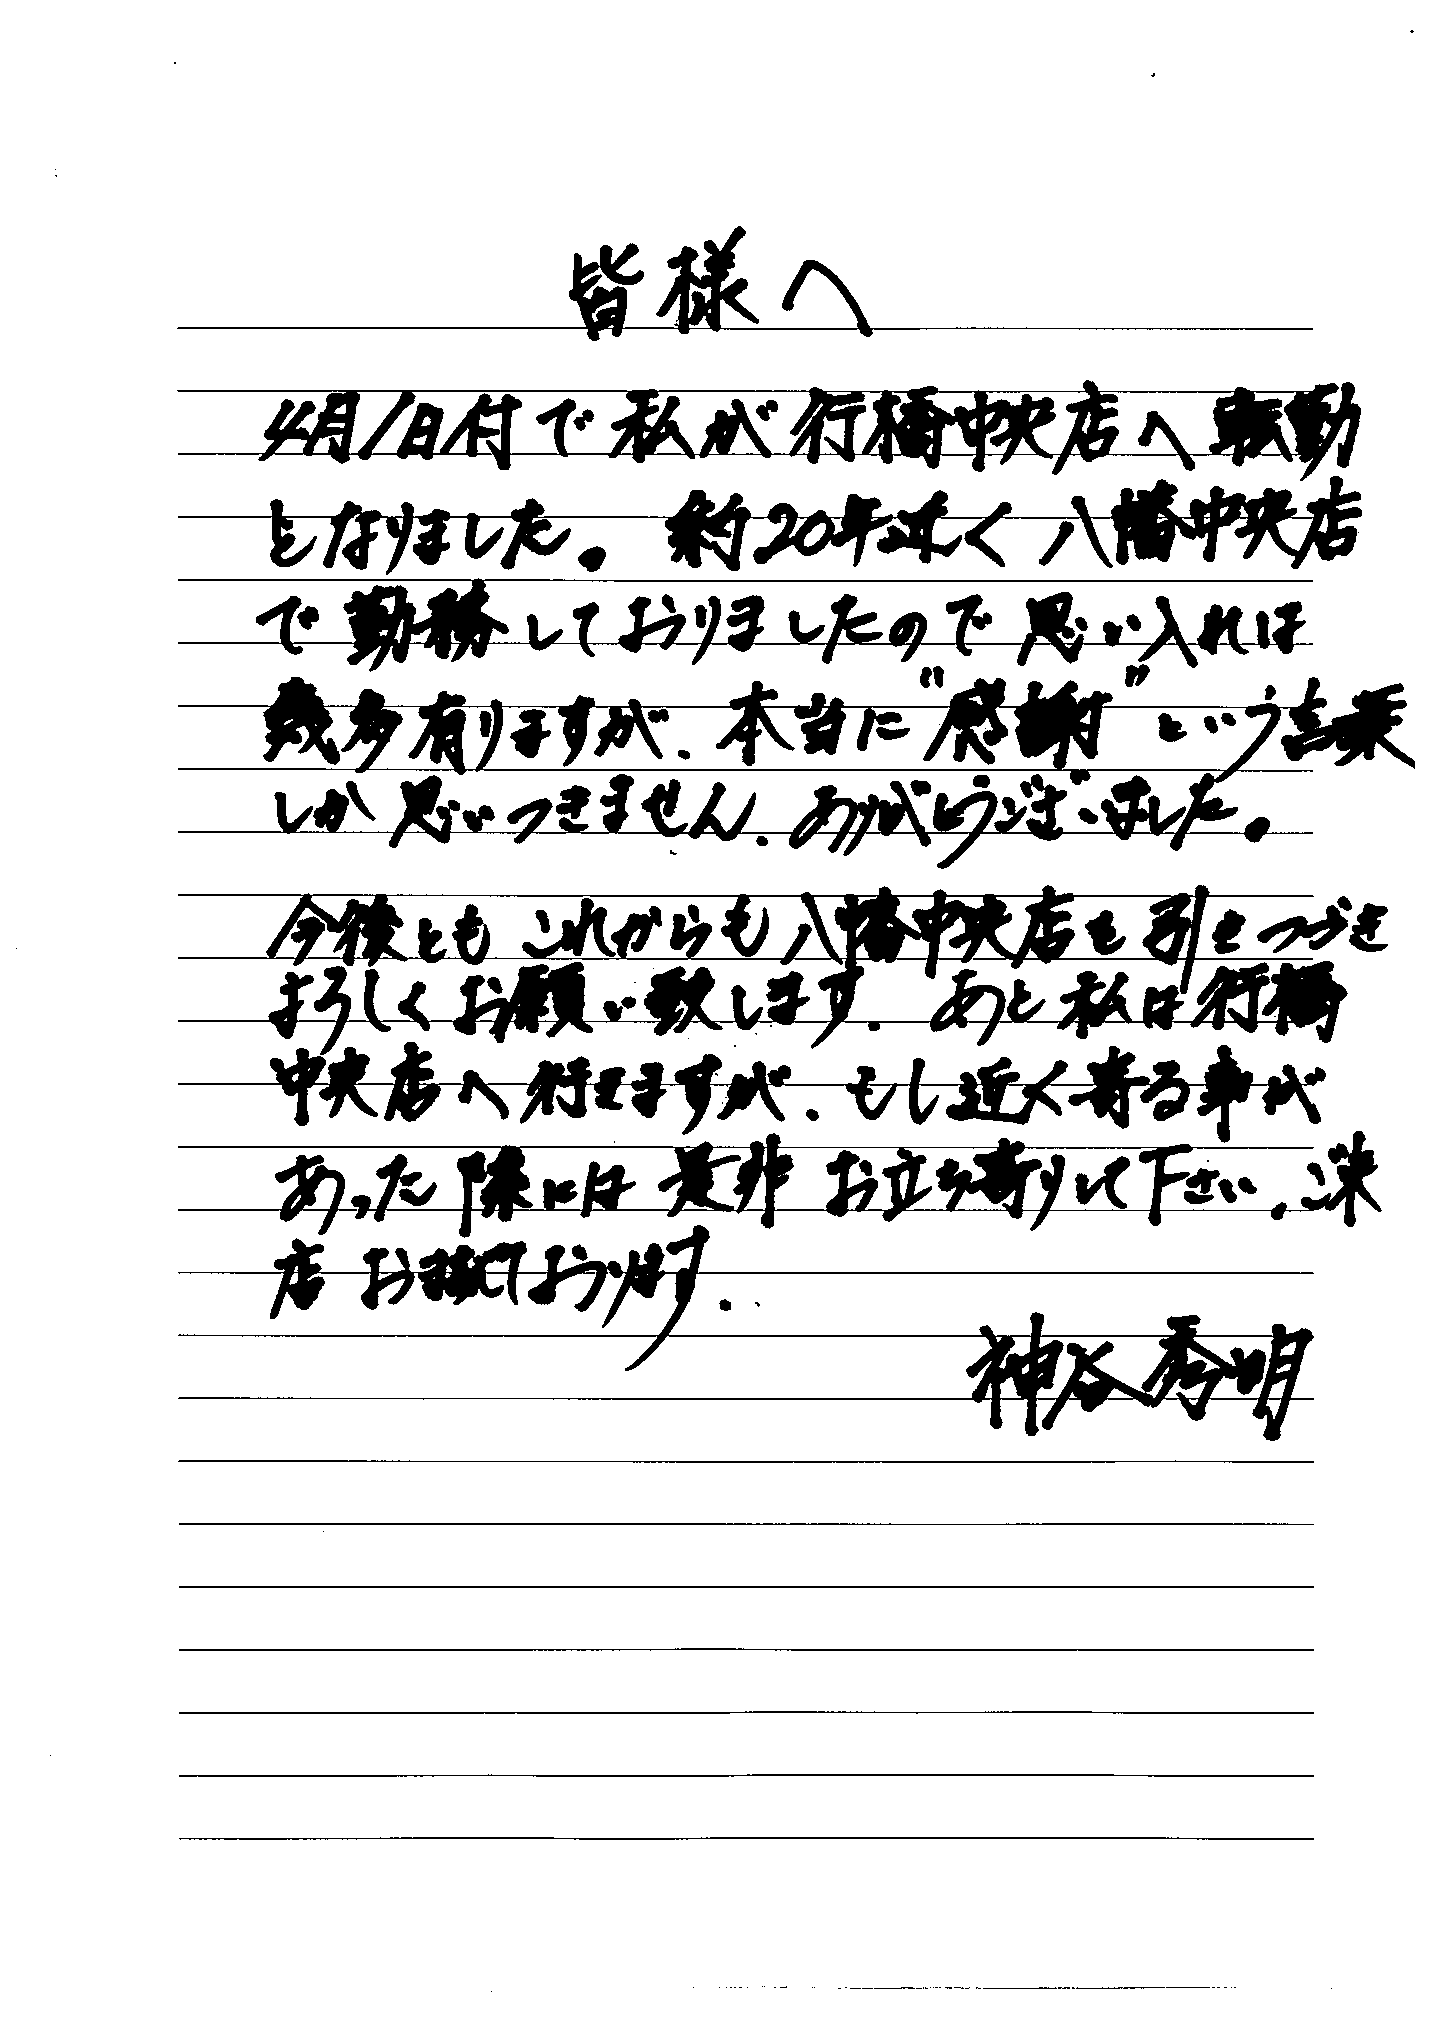 皆様へ
4月1日付で私が行橋中央店へ転勤
となりました。約20年近く八幡中央店
で勤務しておりましたので思い入れは
幾多有りますが、本当に"感謝"という言葉
しか思いつきません。ありがとうございました。
今後ともこれからも八幡中央店を引きつづき
よろしくお願い致します。あと私は行橋
中央店へ行きますが、もし近く寄る事が
あった際には是非お立ち寄りして下さい。ご来
店お待ちしております。
神谷秀明